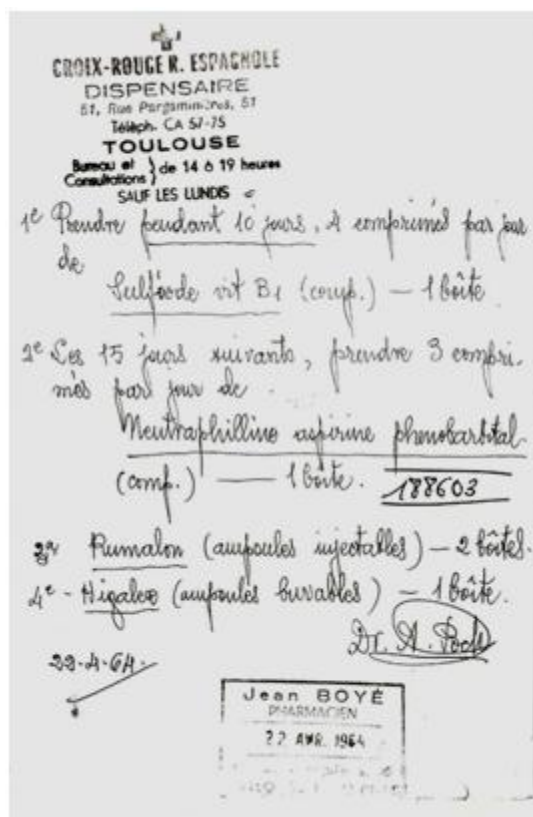 CROIX-ROUGE R. ESPAGNOLE
DISPENSAIRE
51, Rue Pargaminières, 51
Téléph. CA 57-75
TOULOUSE
Bureau et Consultations } de 14 à 19 heures
SAUF LES LUNDIS
1e Prendre pendant 10 jours, 4 comprimés par jour
de
Sulfoode vit B1 (comp.) — 1 boîte
2e Les 15 jours suivants, prendre 3 compri-
més par jour de
Neutraphilline aspirine phenobarbital
(comp.) — 1 boîte. 188603
3e Rumalon (ampoules injectables) — 2 boîtes.
4e - (ampoules buvables) — 1 boîte.
Dr. A.
22-4-64.
Jean BOYÉ
PHARMACIEN
22 AVR. 1964